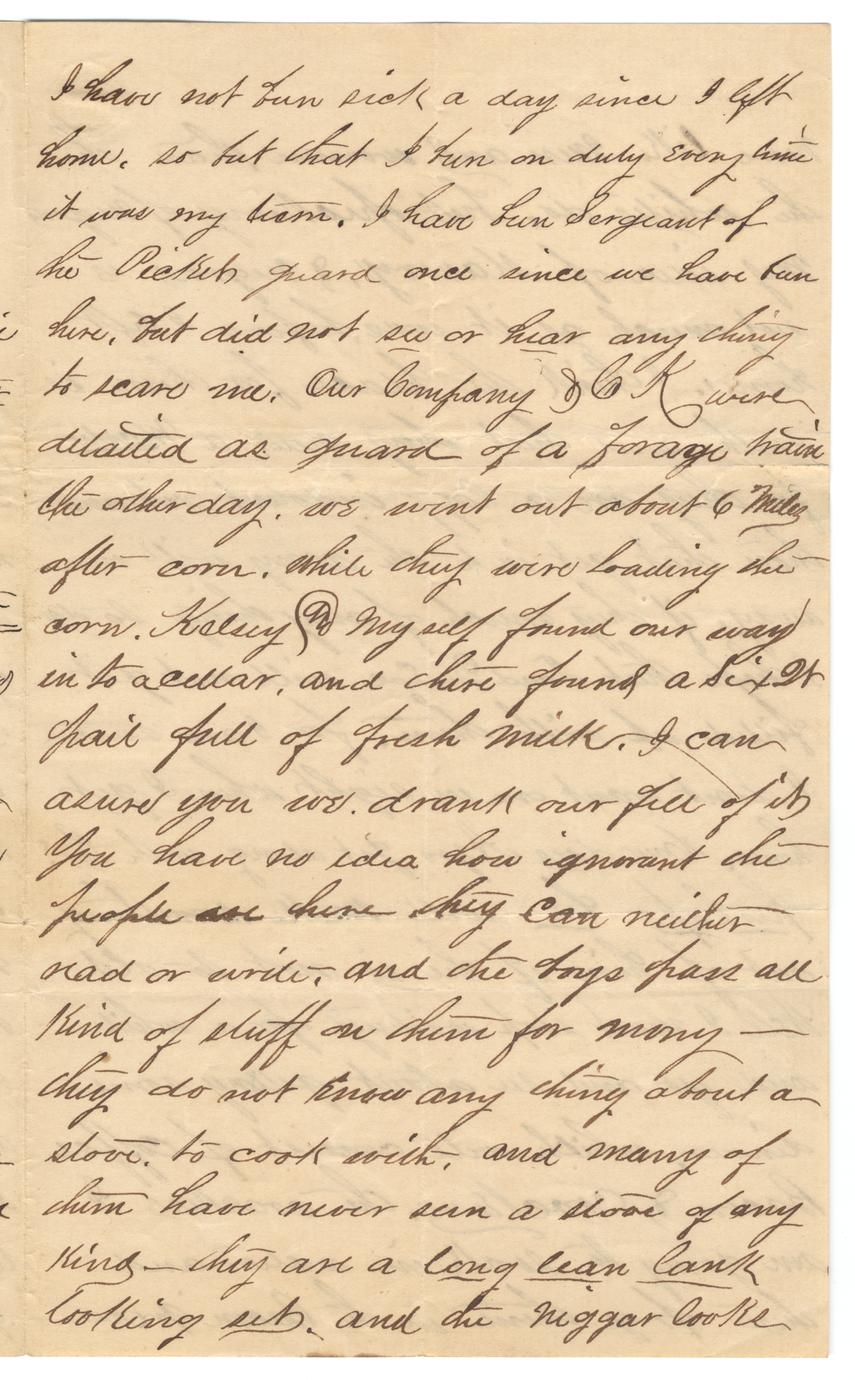 I have not bun sick a day since I left
home. so but that I bun on duty every time
it was my turn. I have bun Sergeant of
the Pickets guard once since we have bun
here, but did not see or hear any thing
to scare me. Our Company & Co K were
detailed as guard of a forage train
the other day. we went out about 6 Miles
after corn. while they were loading the
corn. Kelsey & My self found our way
in to a cellar, and there found a Six Qt
pail full of fresh milk. I can
asure you we. drank our fill of it
You have no idea how ignorant the
people are here they can neither
read or write, and the boys pass all
Kind of stuff on them for mony —
they do not know any thing about a
stove. to cook with. and many of
them have never seen a stove of any
Kind — they are a long lean lank
looking set. and the niggar looks